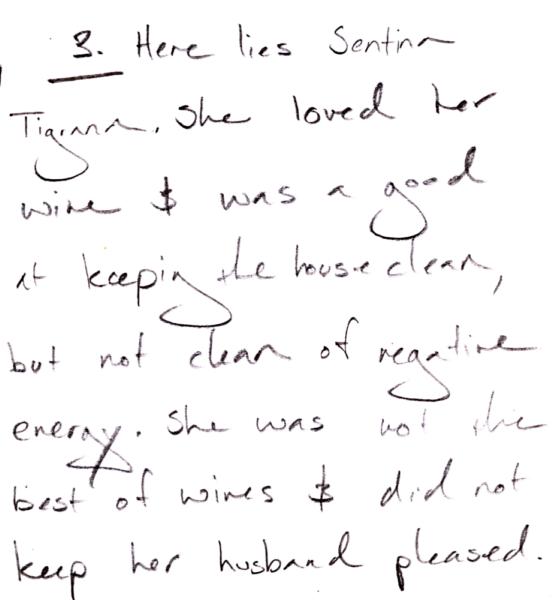 3. Here lies Sentina
Tigrana. She loved her
wine & was a good
at keeping the house clean,
but not clean of negative
energy. She was not the
best of wives & did not
keep her husband pleased.